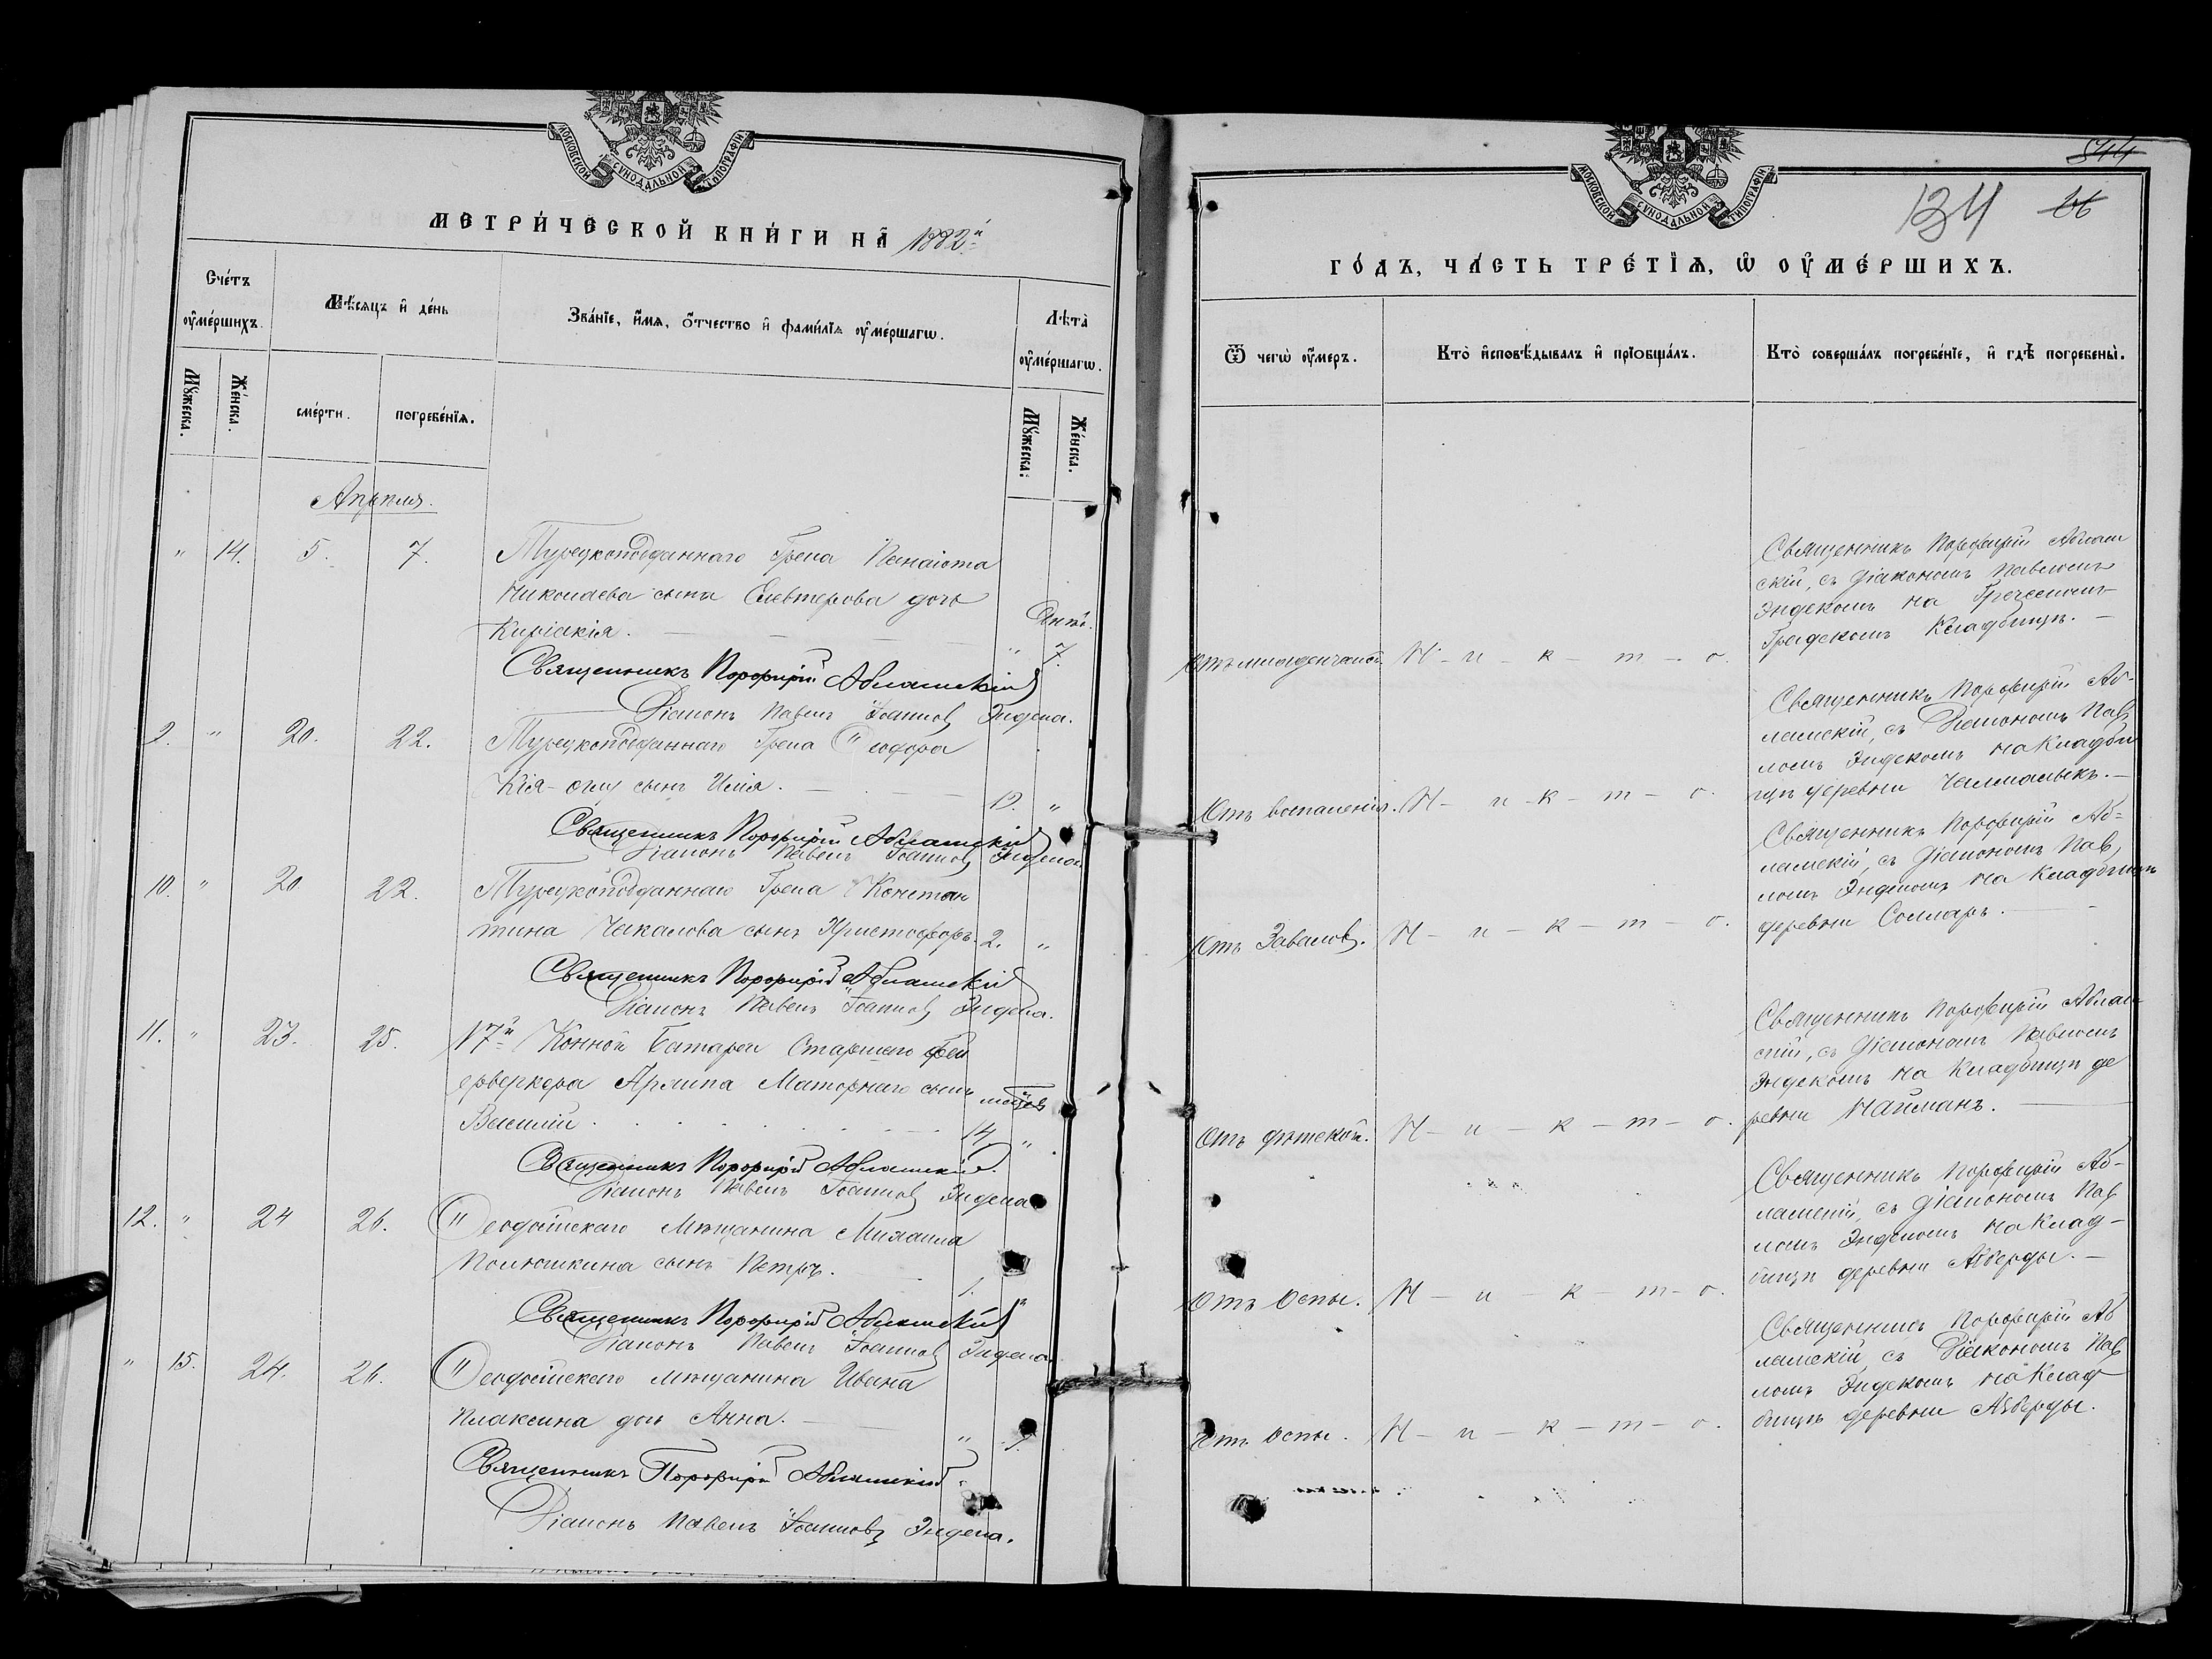 МОСКОВСКОЙ СѴНОДАЛЬНОЙ ТИПОГРАФІИ
МЕТРИ́ЧЕСКОЙ КНИ́ГИ НА̀ 1882й
Сче́тъ ᲂу҆ме́ршихъ.
Мѣ́сяцъ и҆ де́нь
Зва́нїе, и҆́мя, ѻ҆́тчество и҆ фами́лїя ᲂу҆ме́ршагѡ.
Лѣ́та ᲂу҆ме́ршагѡ.
Мꙋ́жеска.
Же́нска.
сме́рти.
погребе́нїя.
Мꙋ́жеска.
Же́нска.
Апрѣля.
" 14. 5. 7. Турецкоподданнаго Грека Панаіота
Николаева сына Елевтерова дочь
Киріакія. " 7.
Священникъ Порфирій Аблашскій
Діаконъ Павелъ Іоанновъ Эндека.
9. " 20. 22. Турецкоподданнаго Грека Ѳеодора
Кія-оглу сынъ Илія. 12. "
Священникъ Порфирій Аблашскій
Діаконъ Павелъ Іоанновъ Эндека.
10. " 20 22. Турецкоподданнаго Грека Констан
тина Чакалова сынъ Христофоръ. 2. "
Священникъ Порфирій Аблашскій
Діаконъ Павелъ Іоанновъ Эндека.
11. " 23. 25. 17й Конной Батареи Старшаго Фей
ерверкера Архипа Маторнаго сынъ
Василій. 14. "
Священникъ Порфирій Аблашскій.
Діаконъ Павелъ Іоанновъ Эндека
12. " 24 26. Ѳеодосійскаго Мѣщанина Михаила
Полюшкина сынъ Петръ. 1. "
Священникъ Порфирій Аблашскій
Діаконъ Павелъ Іоанновъ Эндека
" 15. 24. 26. Ѳеодосійскаго мѣщанина Ивана
Плаксина дочь Анна. "
Священникъ Порфирій Аблашскій.
Діаконъ Павелъ Іоанновъ Эндека.
МОСКОВСКОЙ СѴНОДАЛЬНОЙ ТИПОГРАФІИ
544
134 66
ГО́ДЪ, ЧА́СТЬ ТРЕ́ТЇЯ, Ѡ҆ ОУ҆МЕ́РШИХЪ.
Ѿ чегѡ̀ ᲂу҆́меръ.
Кто̀ и҆сповѣ́дывалъ и҆ прїѡбща́лъ.
Кто̀ соверша́лъ погребе́нїе, и҆ гдѣ̀ погребены̀.
Священникъ Порфирій Аблаш
скій, съ Діакономъ Павломъ
Эндекомъ на Греческомъ
Градскомъ Кладбищѣ.
Отъ младенческой. Н-и-к-т-о.
Священникъ Порфирій Аб-
лашскій, съ Діакономъ Пав
ломъ Эндекомъ на Кладби
щѣ деревни
Отъ воспаленія. Н-и-к-т-о.
Священникъ Порфирій Аб=
лашскій, съ Діакономъ Пав
ломъ Эндекомъ на Кладбищѣ
деревни
Отъ Заваловъ. Н-и-к-т-о.
Священникъ Порфирій Аблаш
скій, съ Діакономъ Павломъ
Эндекомъ на Кладбищѣ де
ревни Найманъ.
Отъ дѣтской. Н-и-к-т-о.
Священникъ Порфирій Аб-
лашскій, съ Діакономъ Пав
ломъ Эндекомъ на Клад-
бищѣ деревни
Отъ Оспы. Н-и-к-т-о.
Священникъ Порфирій Аб
лашскій съ Діакономъ Пав
ломъ Эндекомъ на Клад
бищѣ деревни
Отъ Оспы. Н-и-к-т-о.